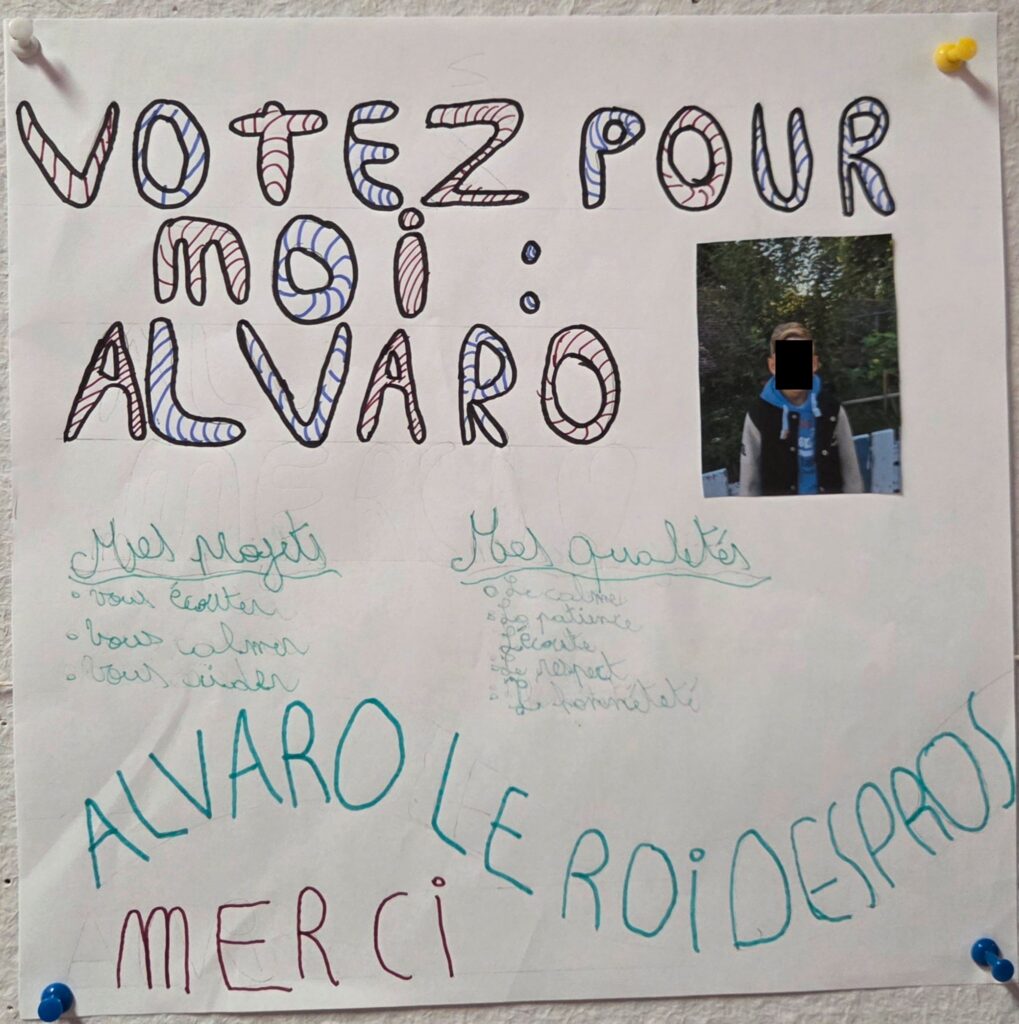 VOTEZ POUR
MOI :
ALVARO
Mes projets
• Vous écouter
• Vous calmer
• Vous aider
Mes qualetés
• Le calme
• La patience
• L'écoute
• Le respect
• Le honnêteté
ALVARO LE ROI DES PROS
MERCI